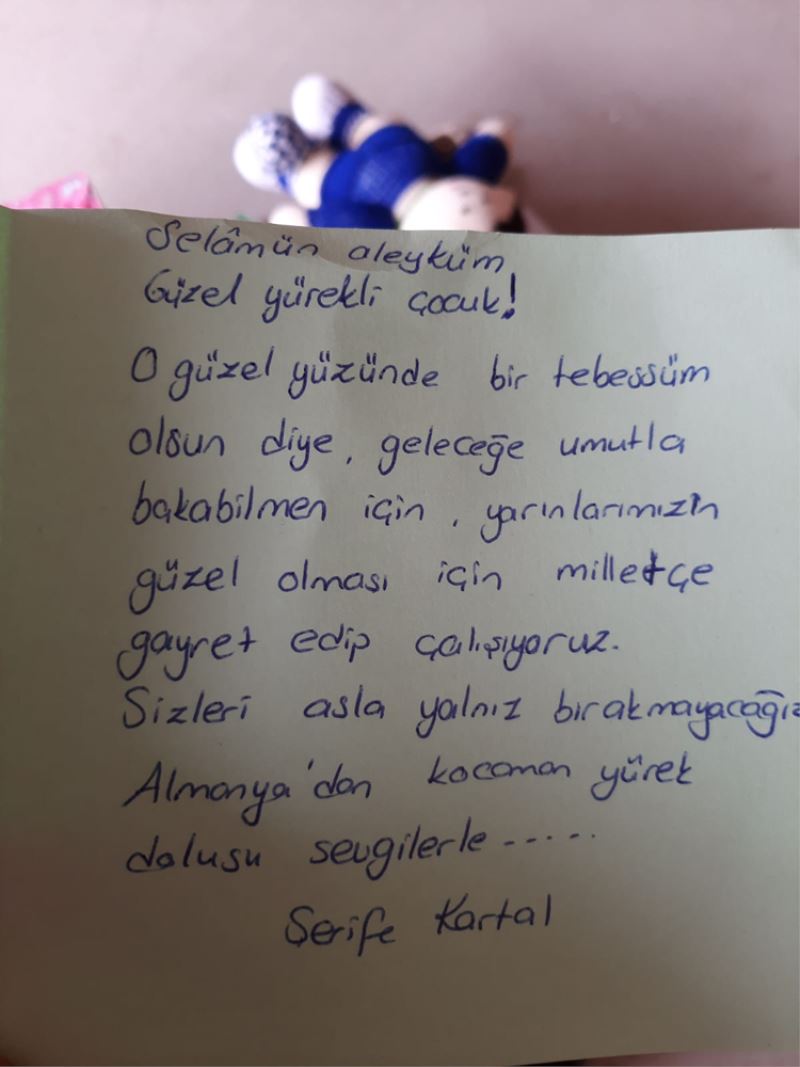 Selâmün aleyküm
Güzel yürekli çocuk!
O güzel yüzünde bir tebessüm
olsun diye, geleceğe umutla
bakabilmen için, yarınlarımızın
güzel olması için milletçe
gayret edip çalışıyoruz.
Sizleri asla yalnız bırakmayacağız
Almanya'dan kocaman yürek
dolusu sevgilerle -----
Şerife Kartal